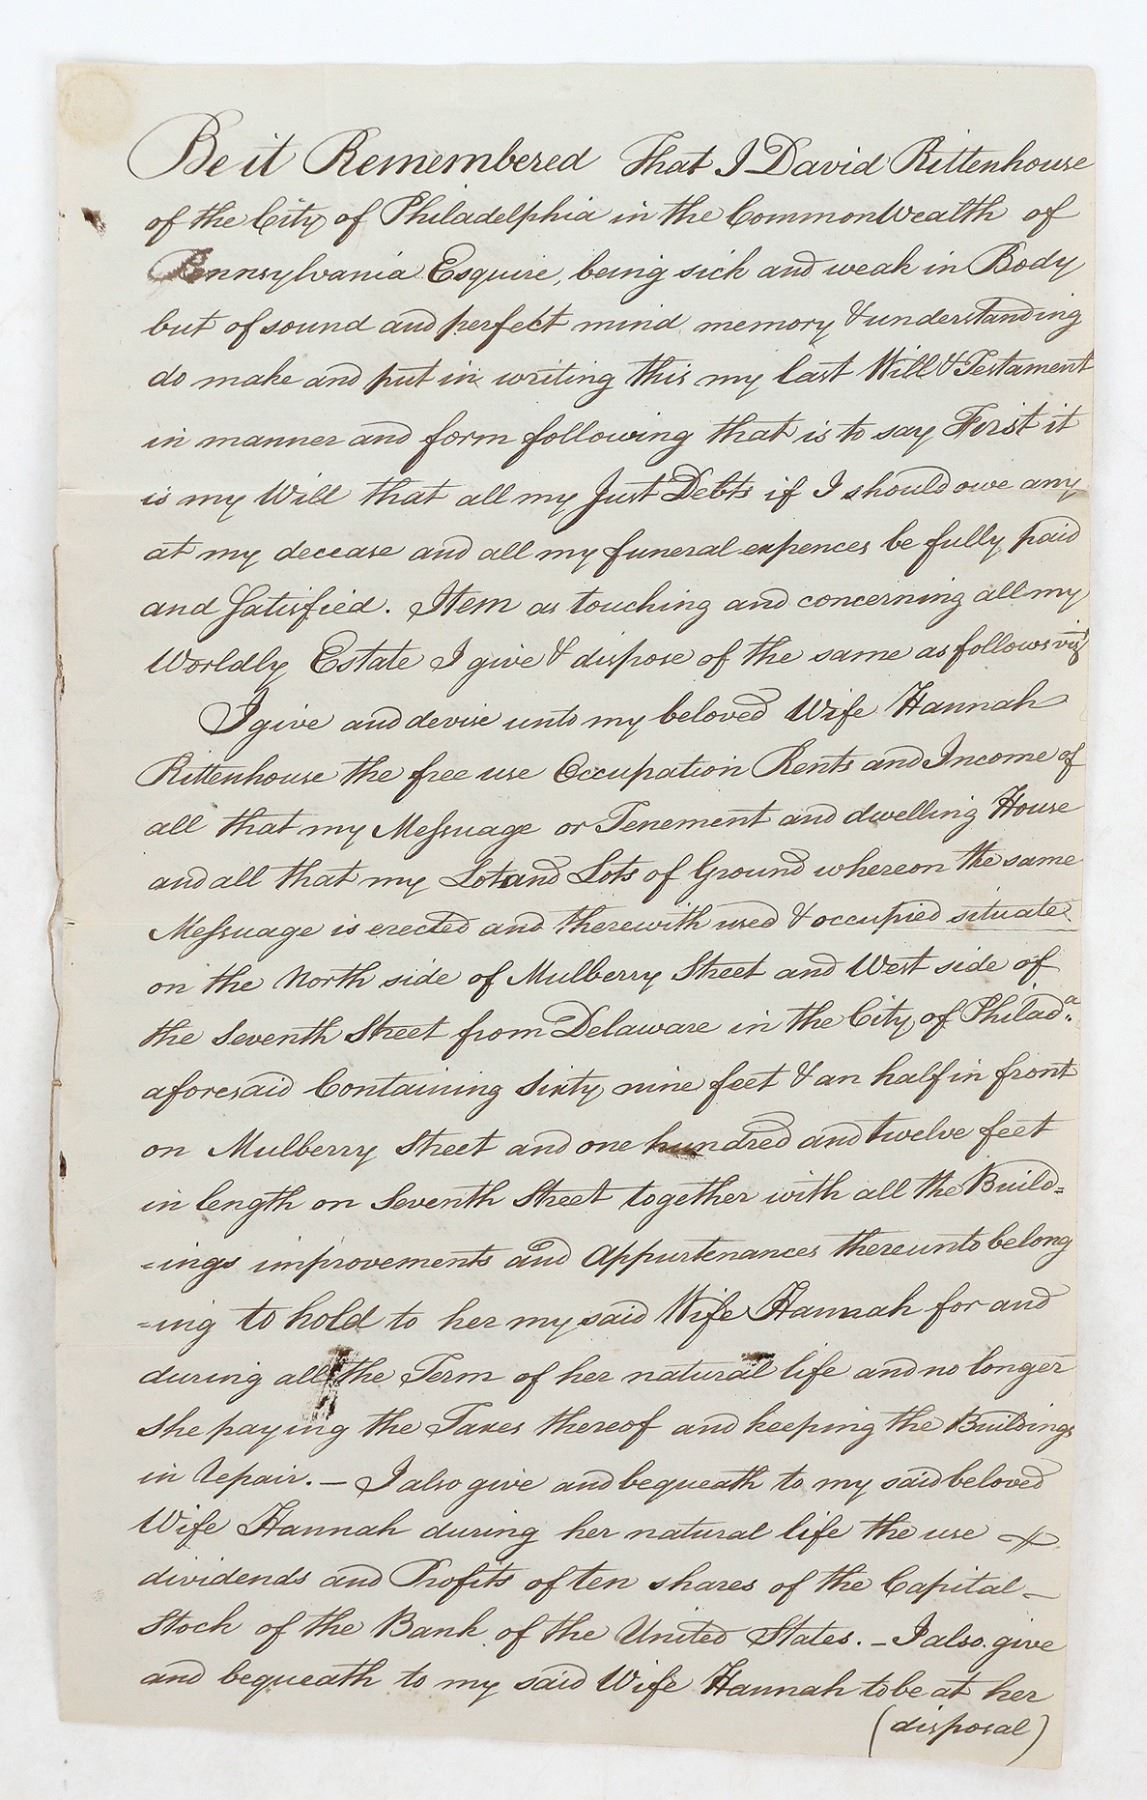 Be it Remembered That I David Rittenhouse
of the City of Philadelphia in the CommonWealth of
Pennsylvania Esquire, being sick and weak in Body
but of sound and perfect mind memory & understanding
do make and put in writing this my last Will & Testament
in manner and form following that is to say First it
is my Will that all my Just Debts if I should owe any
at my decease and all my funeral expences be fully paid
and Satisfied. Item as touching and concerning all my
Worldly Estate I give & dispose of the same as follows viz
I give and devise unto my beloved Wife Hannah
Rittenhouse the free use Occupation Rents and Income of
all that my Messuage or Tenement and dwelling House
and all that my Lot and Lots of Ground whereon the same
Messuage is erected and therewith used & occupied situate
on the North side of Mulberry Street and West side of
the Seventh Street from Delaware in the City of Philada.
aforesaid Containing Sixty nine feet & an half in front
on Mulberry Street and one hundred and twelve feet
in length on Seventh Street together with all the Build=
=ings improvements and Appurtenances thereunto belong
=ing to hold to her my said Wife Hannah for and
during all the Term of her natural life and no longer
She paying the Taxes thereof and keeping the Buildings
in repair. – I also give and bequeath to my said beloved
Wife Hannah during her natural life the use
dividends and Profits of ten shares of the Capital –
Stock of the Bank of the United States. – I also give
and bequeath to my said Wife Hannah to be at her
(disposal)